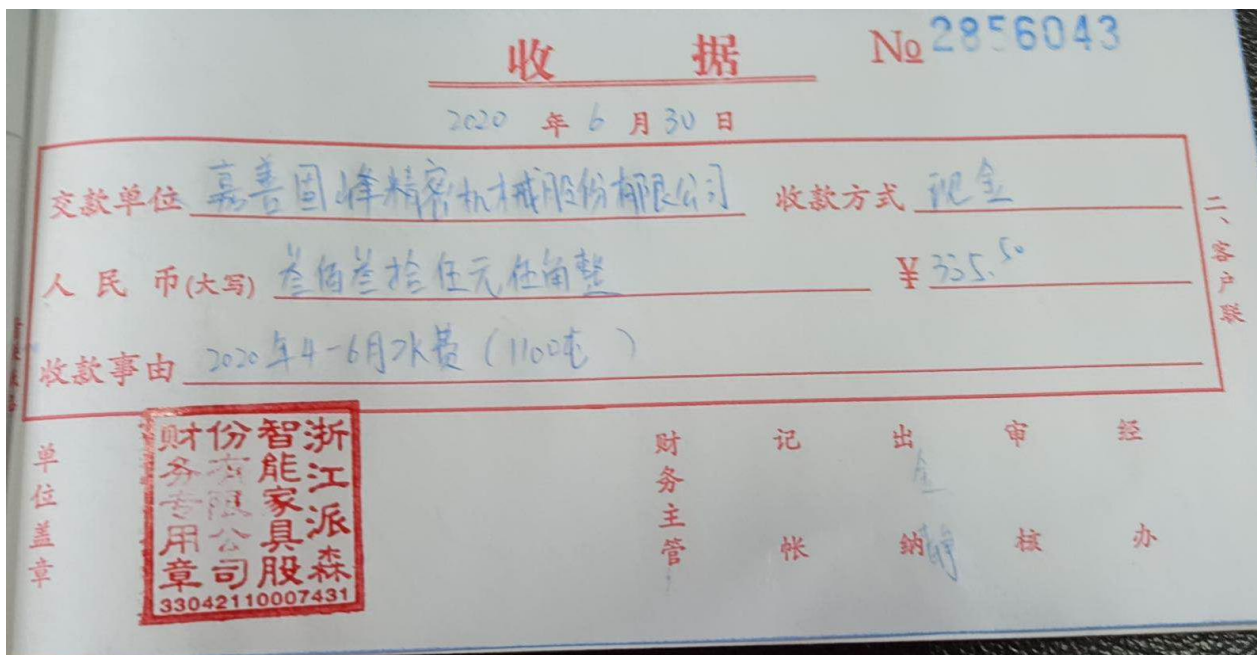 收 据 № 2856043
2020 年 6 月 30 日
交款单位 嘉善固峰精密机械股份有限公司 收款方式 现金
人 民 币(大写) 叁佰叁拾伍元伍角整 ¥ 335.50
收款事由 2020年4-6月水费(1100吨)
二、客户联
单位盖章
浙江派森
智能家具股
份有限公司
财务专用章
33042110007431
财务主管 记 帐 出 纳 审 核 经 办